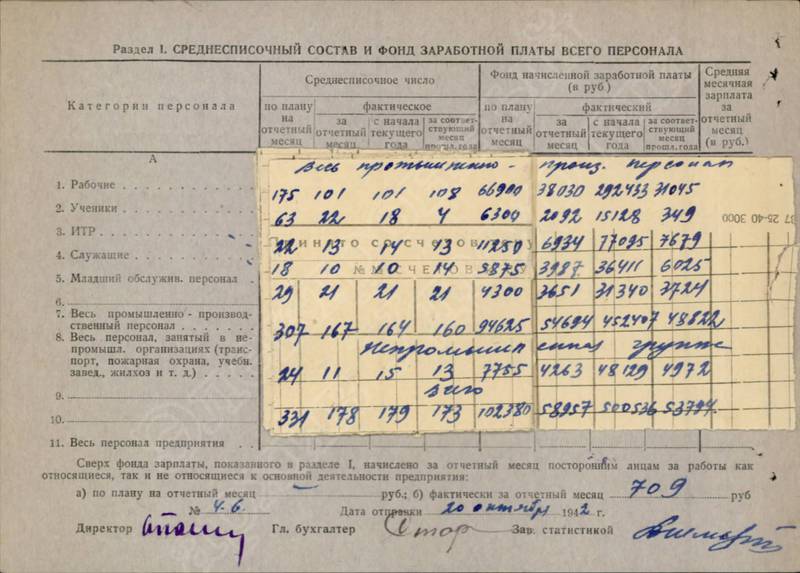 Раздел I. СРЕДНЕСПИСОЧНЫЙ СОСТАВ И ФОНД ЗАРАБОТНОЙ ПЛАТЫ ВСЕГО ПЕРСОНАЛА
Категории персонала
Среднесписочное число
Фонд начисленной заработной платы (в руб.)
Средняя месячная зарплата за отчетный месяц (в руб.)
по плану на отчетный месяц
фактическое
по плану на отчетный месяц
фактический
за отчетный месяц
с начала текущего года
за соответствующий месяц прошл. года
за отчетный месяц
с начала текущего года
за соответствующий месяц прошл. года
А
Весь промышленно- произ. персонал
1. Рабочие 175 101 101 108 66900 38030 292433 31045
2. Ученики 63 22 18 4 6300 2092 15128 349
37 25-40 3000
3. ИТР 22 13 14 13 11250 6934 77095 7679
4. Служащие 18 10 10 14 5875 3987 36411 6025
5. Младший обслужив. персонал 29 21 21 21 4300 3651 31340 3724
6.
7. Весь промышленно-производственный персонал 307 167 164 160 94625 54694 452407 48822
8. Весь персонал, занятый в непромышл. организациях (транспорт, пожарная охрана, учебн. завед., жилхоз и т. д.)
группа
24 11 15 13 7755 4263 48129 4972
9.
Всего
10. 331 178 179 173 102380 58957 500536 53794
11. Весь персонал предприятия
Сверх фонда зарплаты, показанного в разделе I, начислено за отчетный месяц посторонним лицам за работы как
относящиеся, так и не относящиеся к основной деятельности предприятия:
а) по плану на отчетный месяц — руб.; б) фактически за отчетный месяц 709 руб
№ 4.6. Дата отправки 20 октября 1942 г.
Директор Гл. бухгалтер Зав. статистикой